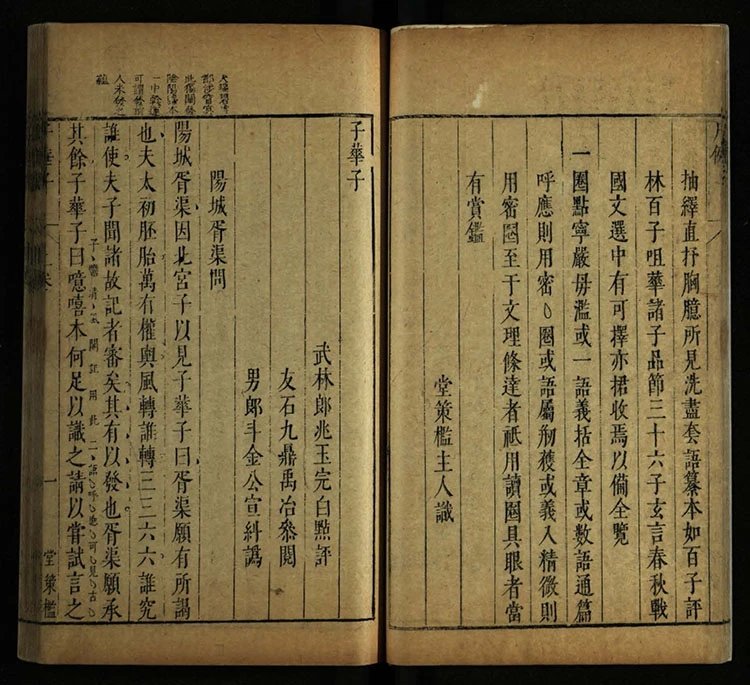 抽繹直抒胸臆所見洗盡套語纂本如百子評
林百子咀華諸子品節三十六子玄言春秋戰
國文選中有可擇亦捃收焉以備全覽
一圈點寧嚴毋濫或一語義括全章或數語通篇
呼應則用密圈或語屬剏獲或義入精微則
用密圈至于文理條達者祇用讀圈具眼者當
有賞鑑
堂策檻主人識
子華子
武林郎兆玉完白點評
友石九鼎禹冶叅閱
男郎斗金公宣糾譌
陽城胥渠問
陽城胥渠因北宮子以見子華子曰胥渠願有所謁
也夫太初胚胎萬有權輿風轉誰轉三三六六誰究
誰使夫子聞諸故記者審矣其有以發也胥渠願承
其餘子華子曰噫嘻本何足以識之請以嘗試言之
子華子
一
堂策檻